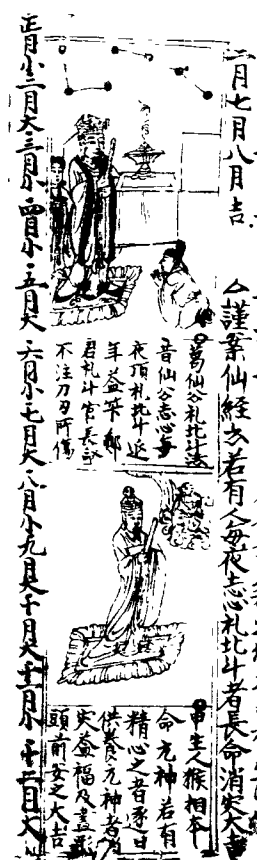 二月七月八月吉
謹案仙經云若有人每夜志心礼北斗者長命消灾大吉
葛仙公礼北斗法
昔仙公志心每
夜頂礼北斗延
年益筭鄭
君礼斗官長命
不注刀刃所傷
申生人猴相本
命元神若有
精心之者逐日
供養元神者
灾益福及畫形
頭前安之大吉
正月小二月大三月小四月小五月大六月小七月大八月小九月大十月大十一月小十二月大